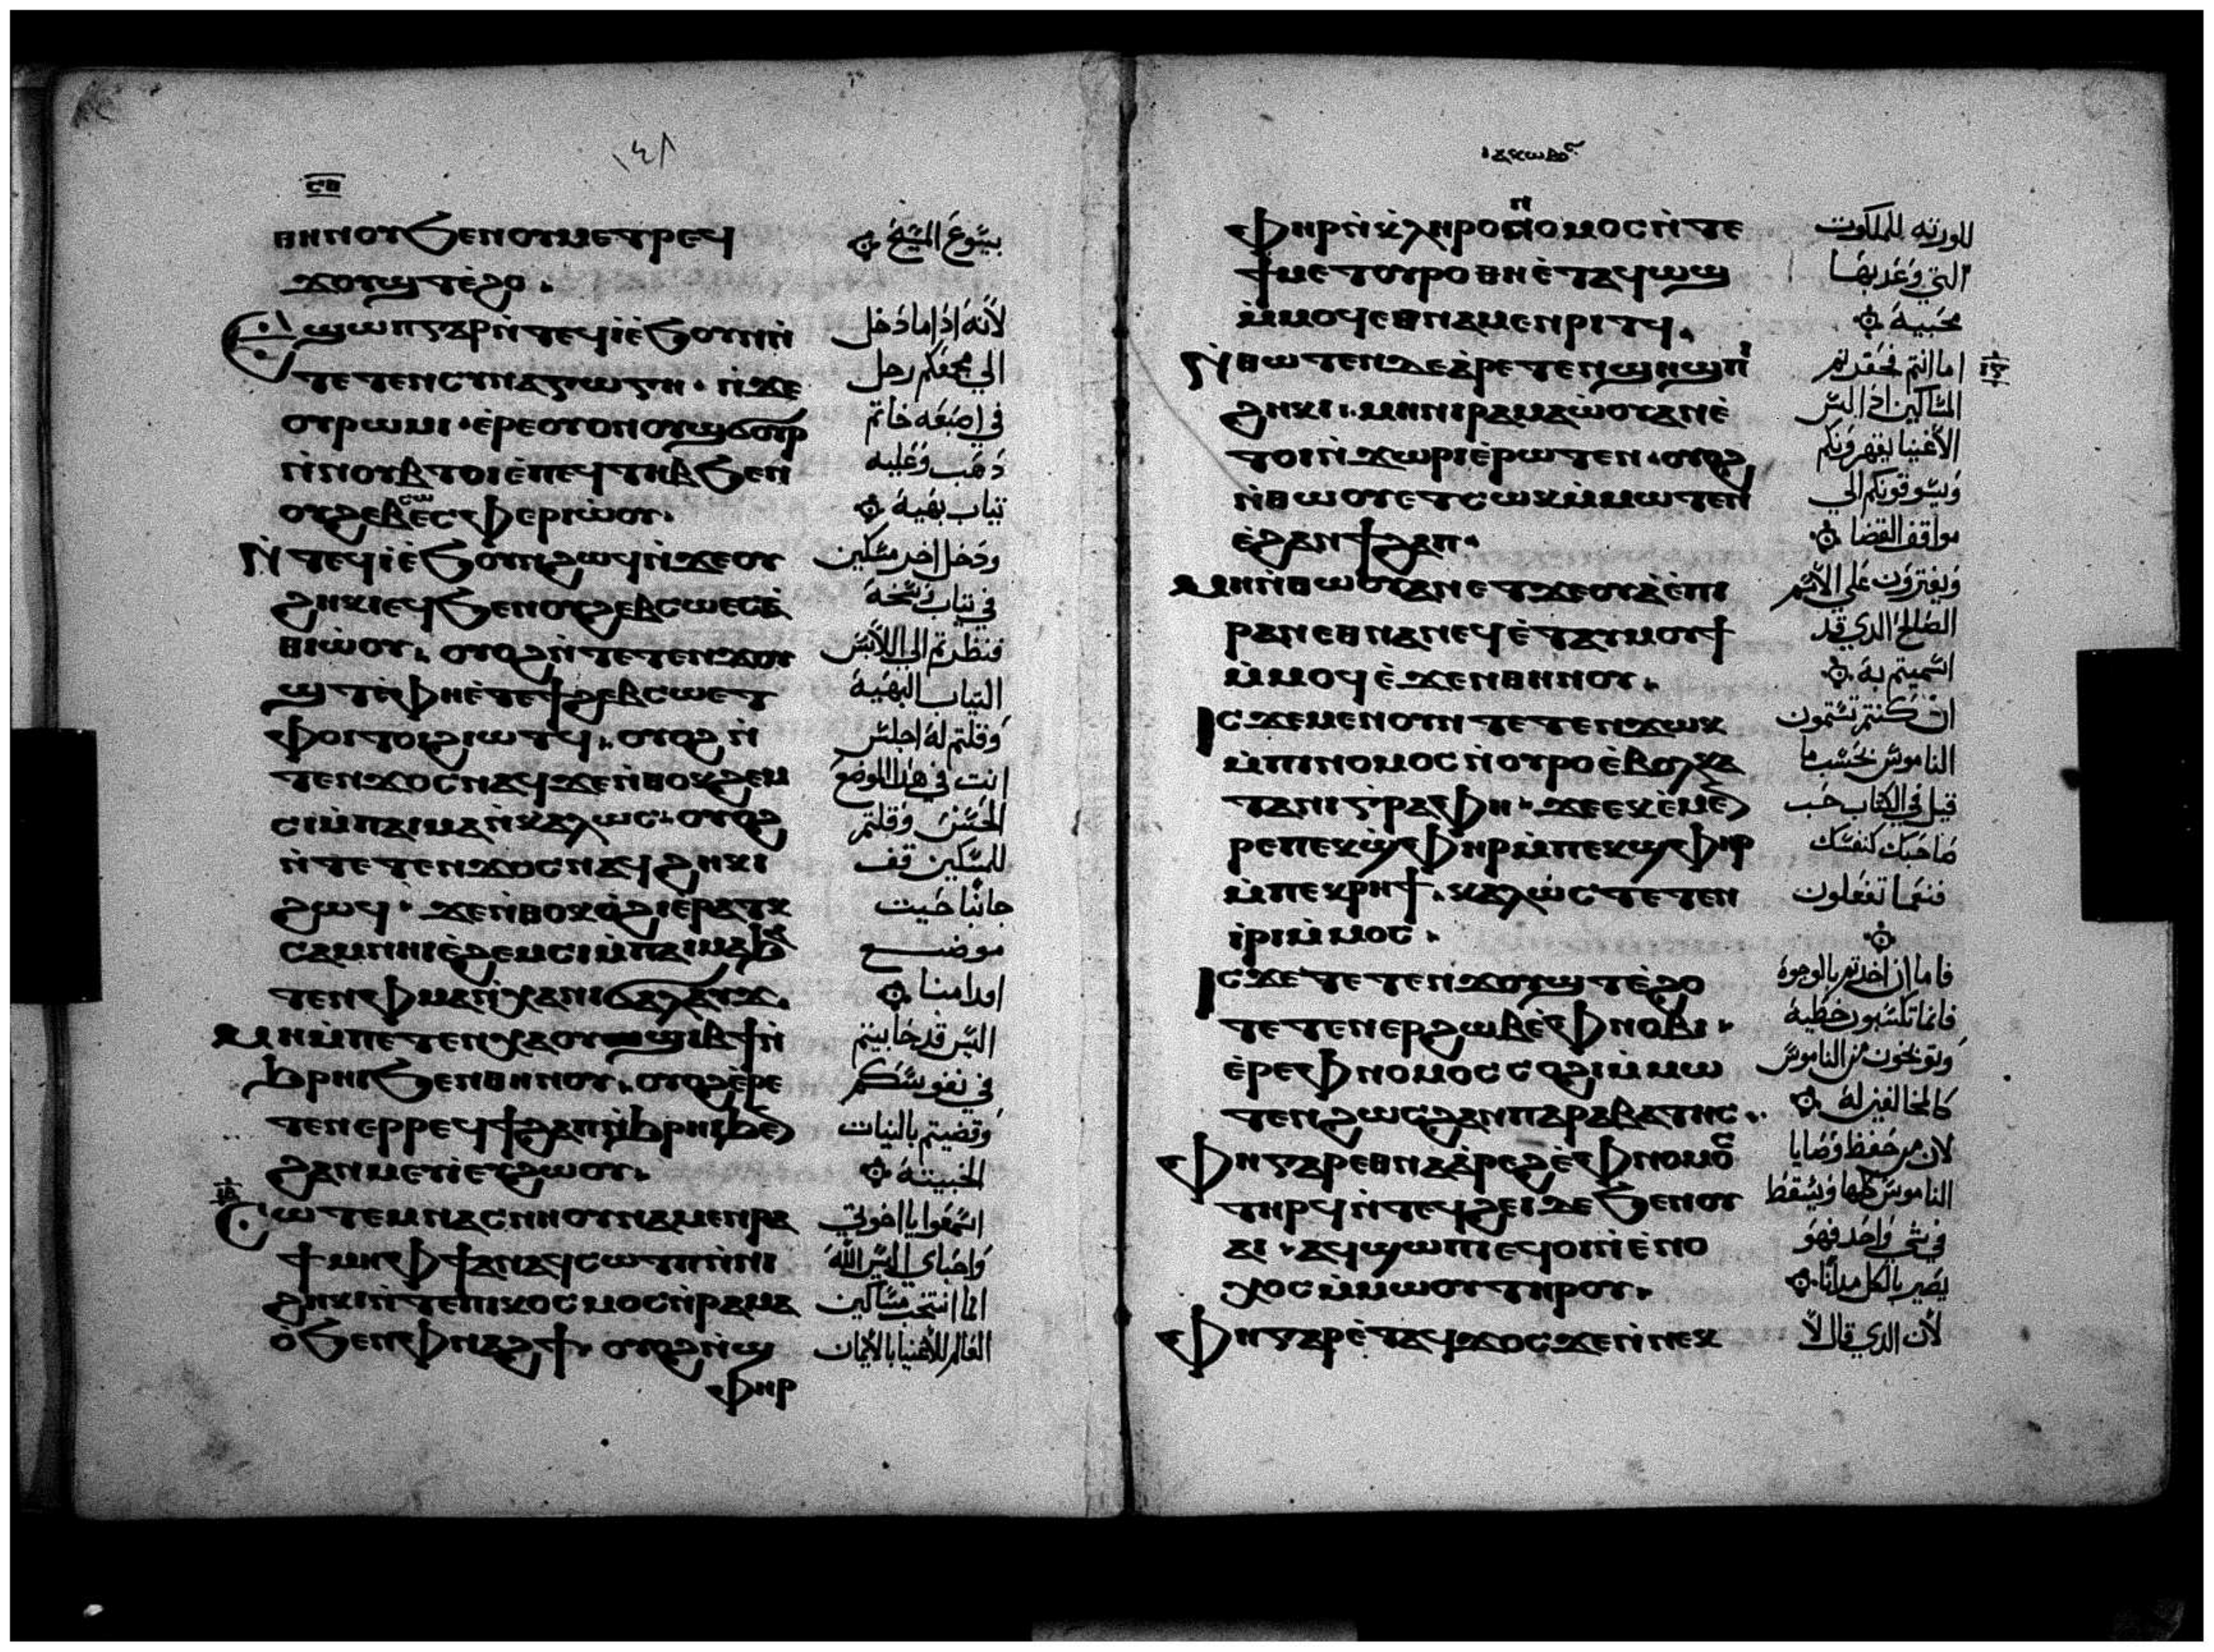 ١٤٨
ⲣⲑ
ⲑⲏⲛⲟⲩ ϧⲉⲛⲟⲩⲙⲉⲧⲣⲉϥ
ϫⲟⲩϣⲧⲉ̀ϩⲟ.
ϣⲱⲡⲅⲁⲣⲛ̀ⲧⲉϥⲓ̀ⲉ̀ϧⲟⲩⲛⲛ̀
ⲧⲉⲧⲉⲛⲥⲩⲛⲁⲅⲱⲅⲏ. ⲛ̀ϫⲉ
ⲟⲩⲣⲱⲙⲓ. ⲉ̀ⲣⲉⲟⲩⲟⲛⲟⲩϣϭⲟⲩⲣ
ⲛ̀ⲛⲟⲩⲃⲧⲟⲓⲉ̀ⲡⲉϥⲧⲏⲃϧⲉⲛ
ⲟⲩϩⲉⲃⲥⲱⲉⲥⲫⲉⲣⲓⲱ̀ⲟⲩ.
ⲛ̀ⲧⲉϥⲓ̀ⲉ̀ϧⲟⲩⲛϩⲱϥⲛ̀ϫⲉⲟⲩ
ϩⲏⲕⲓⲉϥϧⲉⲛⲟⲩϩⲉⲃⲥⲱⲉⲥϭ
ⲑⲓⲱ̀ⲟⲩ. ⲟⲩⲟϩⲛ̀ⲧⲉⲧⲉⲛϫⲟⲩ
ϣⲧⲉ̀ⲫⲏⲉ̀ⲧⲉϯϩⲉⲃⲥⲱⲉⲧ
ⲫⲟⲓⲧⲟⲓϩⲓⲱⲧϥ. ⲟⲩⲟϩⲛ̀
ⲧⲉⲛϫⲟⲥⲛⲁϥϫⲉⲛ̀ⲑⲟⲕϩⲉⲙ
ⲥⲓⲙ̀ⲡⲁⲓⲙⲁⲛ̀ⲕⲁⲗⲱⲥ. ⲟⲩⲟϩ
ⲛ̀ⲧⲉⲧⲉⲛϫⲟⲥⲛⲁϥϩⲏⲕⲓ
ϩⲱϥ. ϫⲉⲛ̀ⲑⲟⲕⲟ̀ϩⲓⲉⲣⲁⲧⲕ
ⲥⲁⲙⲛⲏⲓⲉ̀ϩⲉⲙⲥⲓⲙ̀ⲡⲁⲓⲙⲁϧⲁ
ⲧⲉⲛⲫⲙⲁⲛ̀ⲭⲁⲛⲓϭⲁⲗⲁⲩϫ.
ⲙⲏⲙ̀ⲡⲉⲧⲉⲛⲭⲁⲟⲩϣⲓⲃϯⲛ̀
ϧⲣⲏⲓϧⲉⲛⲑⲏⲛⲟⲩ. ⲟⲩⲟϩⲉ̀ⲣⲉ
ⲧⲉⲛⲉⲣⲣⲉϥϯϩⲁⲡⲛ̀ϧⲣⲏⲓϧⲉⲛ
ϩⲁⲛⲙⲉⲩⲓ̀ⲉⲩϩⲱⲟⲩ.
ⲥⲱⲧⲉⲙⲛⲁⲥⲛⲏⲟⲩⲛⲁⲙⲉⲛⲣⲁ
ϯⲙⲏⲫϯⲁⲛⲁϥⲥⲱⲧⲡⲛ̀ⲛⲓ
ϩⲏⲕⲓⲛ̀ⲧⲉⲡⲓⲕⲟⲥⲙⲟⲥⲛ̀ⲣⲁⲙⲁ
ⲟ̀ϧⲉⲛⲫⲛⲁϩϯ. ⲟⲩⲟϩⲛ̀ϣ
ⲫⲏⲣ
بيسوع المسيح
لأنه اذا ما دخل
الي مجمعكم رجل
في اصبعه خاتم
ذهب وعليه
تياب بهية
ودخل اخر مسكين
في تياب وسخة
فنظرتم الي اللابس
التياب البهية
وقلتم له اجلس
انت في هذا الموضع
الحسن وقلتم
للمسكين قف
جانبًا حيت
موضــع
اقدامنا
اليس قد حابيتم
في نفوسكم
وقضيتم بالنيات
الخبيتة
اسمعوا يا اخوتي
واحباي اليس الله
انما انتخب مساكين
العالم للاغنيا بالايمان
ⲓⲁⲕⲱⲃⲟⲥ
ⲫⲏⲣⲛ̀ⲕⲗⲏⲣⲟⲛⲟⲙⲟⲥⲛ̀ⲧⲉ
ϯⲙⲉⲧⲟⲩⲣⲟⲑⲏⲉ̀ⲧⲁϥⲱϣ
ⲙ̀ⲙⲟϥⲉⲑⲛⲁⲙⲉⲛⲣⲓⲧϥ.
ⲛ̀ⲑⲱⲧⲉⲛⲇⲉⲁ̀ⲣⲉⲧⲉⲛϣⲏϣⲡⲓ
ϩⲏⲕⲓ. ⲙⲏⲛⲓⲣⲁⲙⲁⲱ̀ⲟⲩⲁⲛⲉ̀
ⲧⲟⲓⲛ̀ϫⲱⲣⲓⲉ̀ⲣⲱⲧⲉⲛ. ⲟⲩⲟϩ
ⲛ̀ⲑⲱⲟⲩⲉⲧⲥⲱⲕⲙ̀ⲙⲱⲧⲉⲛ
ⲉ̀ϩⲁⲛϯϩⲁⲡ.
ⲙⲏⲛ̀ⲑⲱⲟⲩⲁⲛⲉⲧϫⲉⲟⲩⲁ̀ⲉ̀ⲡⲓ
ⲣⲁⲛⲉⲑⲛⲁⲛⲉϥⲉ̀ⲧⲁⲩⲙⲟⲩϯ
ⲙ̀ⲙⲟϥⲉ̀ϫⲉⲛⲑⲏⲛⲟⲩ.
ⲓⲥϫⲉⲙⲉⲛⲟⲩⲛⲧⲉⲧⲉⲛϫⲱⲕ
ⲙ̀ⲡⲓⲛⲟⲙⲟⲥⲛ̀ⲟⲩⲣⲟⲉ̀ⲃⲟⲗⲕⲁ
ⲧⲁⲛⲓⲅⲣⲁⲫⲏ. ϫⲉⲉⲕⲉ̀ⲙⲉⲛ
ⲣⲉⲡⲉⲕϣ̀ⲫⲏⲣⲙ̀ⲡⲉⲕϣⲫⲏⲣ
ⲙ̀ⲡⲉⲕⲣⲏϯ. ⲕⲁⲗⲱ̀ⲥⲧⲉⲧⲉⲛ
ⲓ̀ⲣⲓⲙ̀ⲙⲟⲥ.
ⲓⲥϫⲉⲧⲉⲧⲉⲛϫⲟⲩϣⲧⲉ̀ϩⲟ
ⲧⲉⲧⲉⲛⲉⲣϩⲱⲃⲉ̀ⲫⲛⲟⲃⲓ.
ⲉ̀ⲣⲉⲫⲛⲟⲙⲟⲥⲥⲟϩⲓⲙ̀ⲙⲱ
ⲧⲉⲛϩⲱⲥϩⲁⲛⲡⲁⲣⲁⲃⲁⲧⲏⲥ.
ⲫⲏⲅⲁⲣⲉⲑⲛⲁⲁ̀ⲣⲉϩⲉ̀ⲫⲛⲟⲙⲟⲥ
ⲧⲏⲣϥⲛ̀ⲧⲉϥϩⲉⲓⲇⲉϧⲉⲛⲟⲩ
ⲁⲓ. ⲁϥϣⲱⲡⲓⲉϥⲟⲓⲛ̀ⲉ̀ⲛⲟ
ⲭⲟⲥⲙ̀ⲙⲱⲟⲩⲧⲏⲣⲟⲩ.
ⲫⲏⲅⲁⲣⲉ̀ⲧⲁϥϫⲟⲥϫⲉⲛ̀ⲛⲉⲕ
للورتة للملكوت
التي وعد بها
محبية
اما انتم فحقرتم
المساكين اذ اليس
الأغنيا يقهرونكم
ويسوقونكم الي
مواقف القضا
ويفترون علي الاسم
الصالح الدي قد
اتسميتم به
ان كنتم تتمون
الناموس بحسب ما
قيل في الكتاب حب
صاحبك كنفسك
فنعما تفعلون
فاما ان اخدتم بالوجوه
فانما تكسبون خطية
وتوبخون من الناموس
كالمخالفين له
لان من حفظ وصايا
الناموس كلها ويسقط
في شي واحد فهو
يصير بالكل مدانًا
لأن الدي قال لا